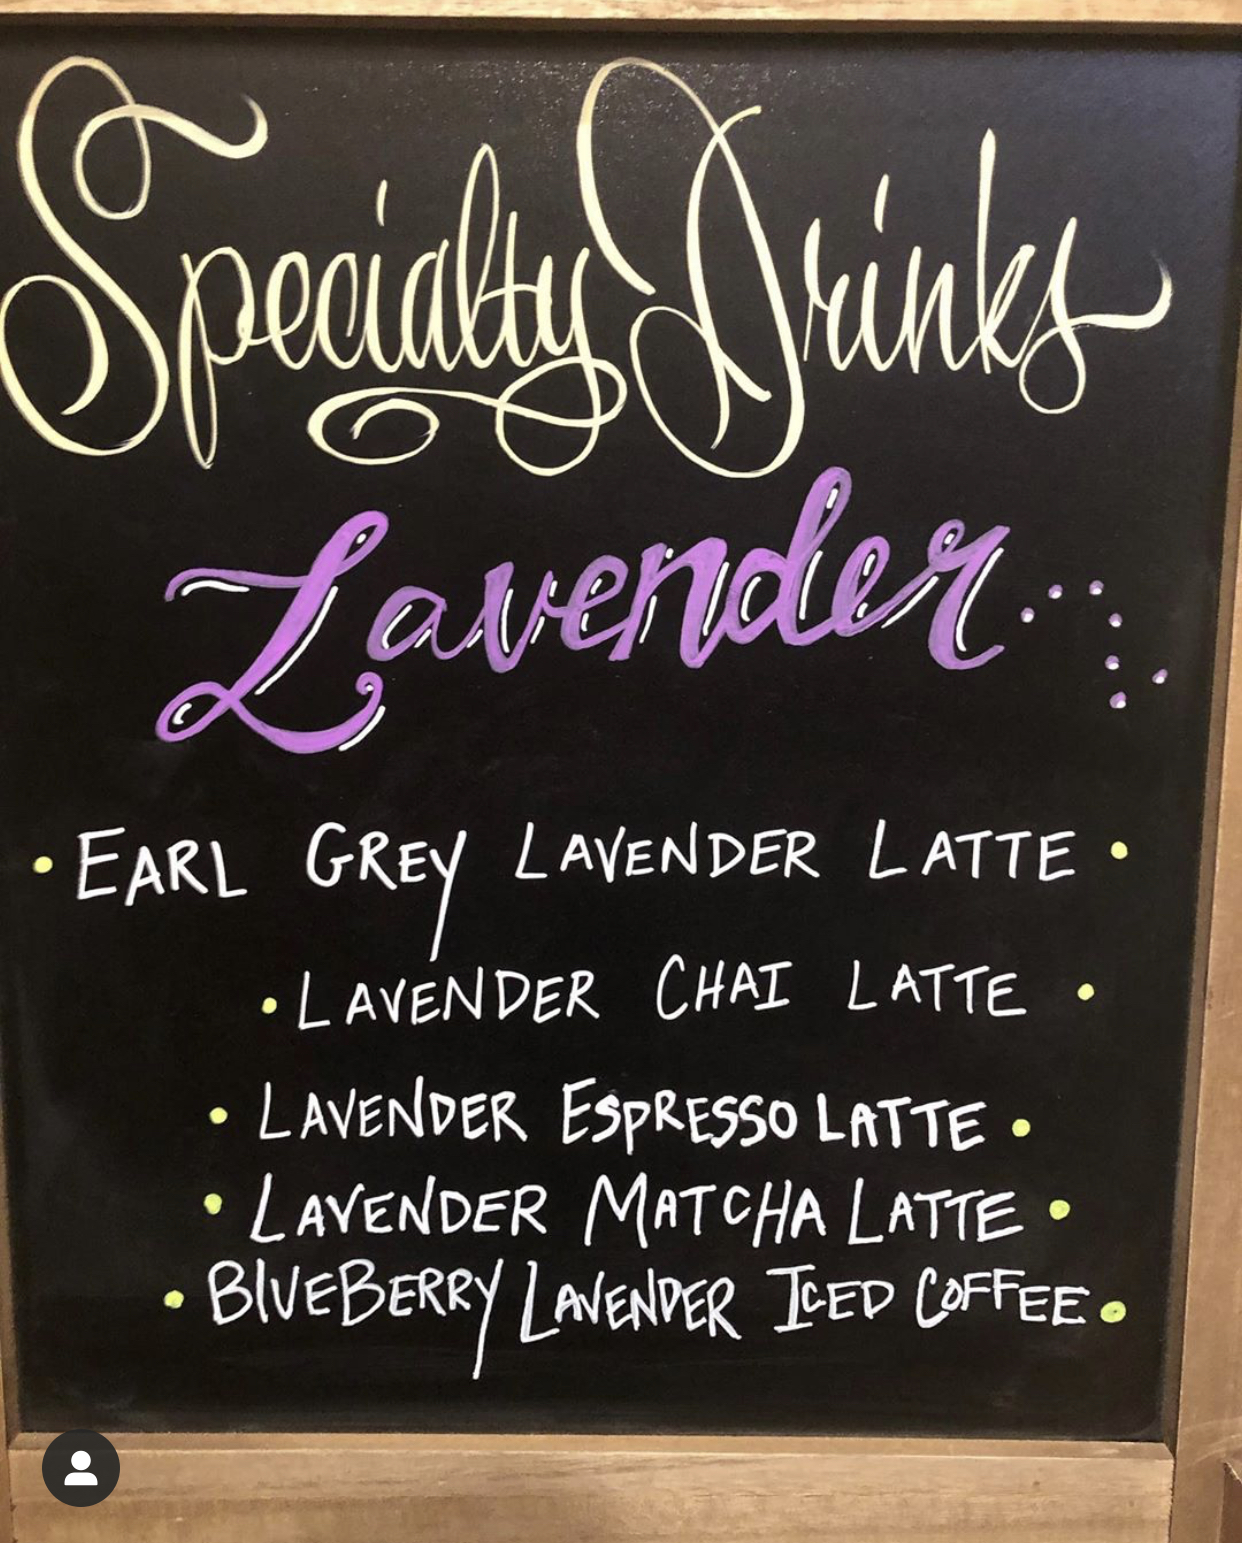 Specialty Drinks
Lavender
EARL GREY LAVENDER LATTE
LAVENDER CHAI LATTE
LAVENDER ESPRESSO LATTE
LAVENDER MATCHA LATTE
BlUEBERRY LAVENDER ICED COFFEE